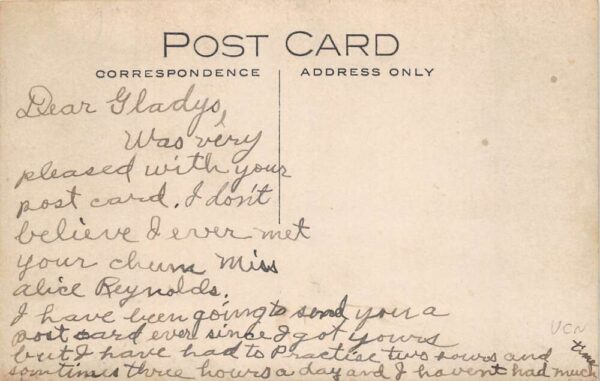 POST CARD
CORRESPONDENCE
ADDRESS ONLY
Dear Gladys,
Was very
pleased with your
post card. I don't
believe I ever met
your chum Miss
Alice Reynolds.
I have been going to send you a
post card ever since I got yours
but I have had to Practise two hours and
somtimes three hours a day and I havent had much
time
VCN